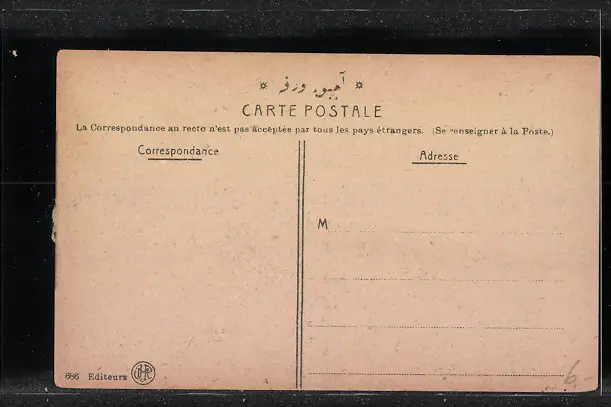 آچیق ورقه
CARTE POSTALE
La Correspondance au recto n'est pas acceptée par tous les pays étrangers. (Se renseigner à la Poste.)
Correspondance
Adresse
M
686 Editeurs
6.-